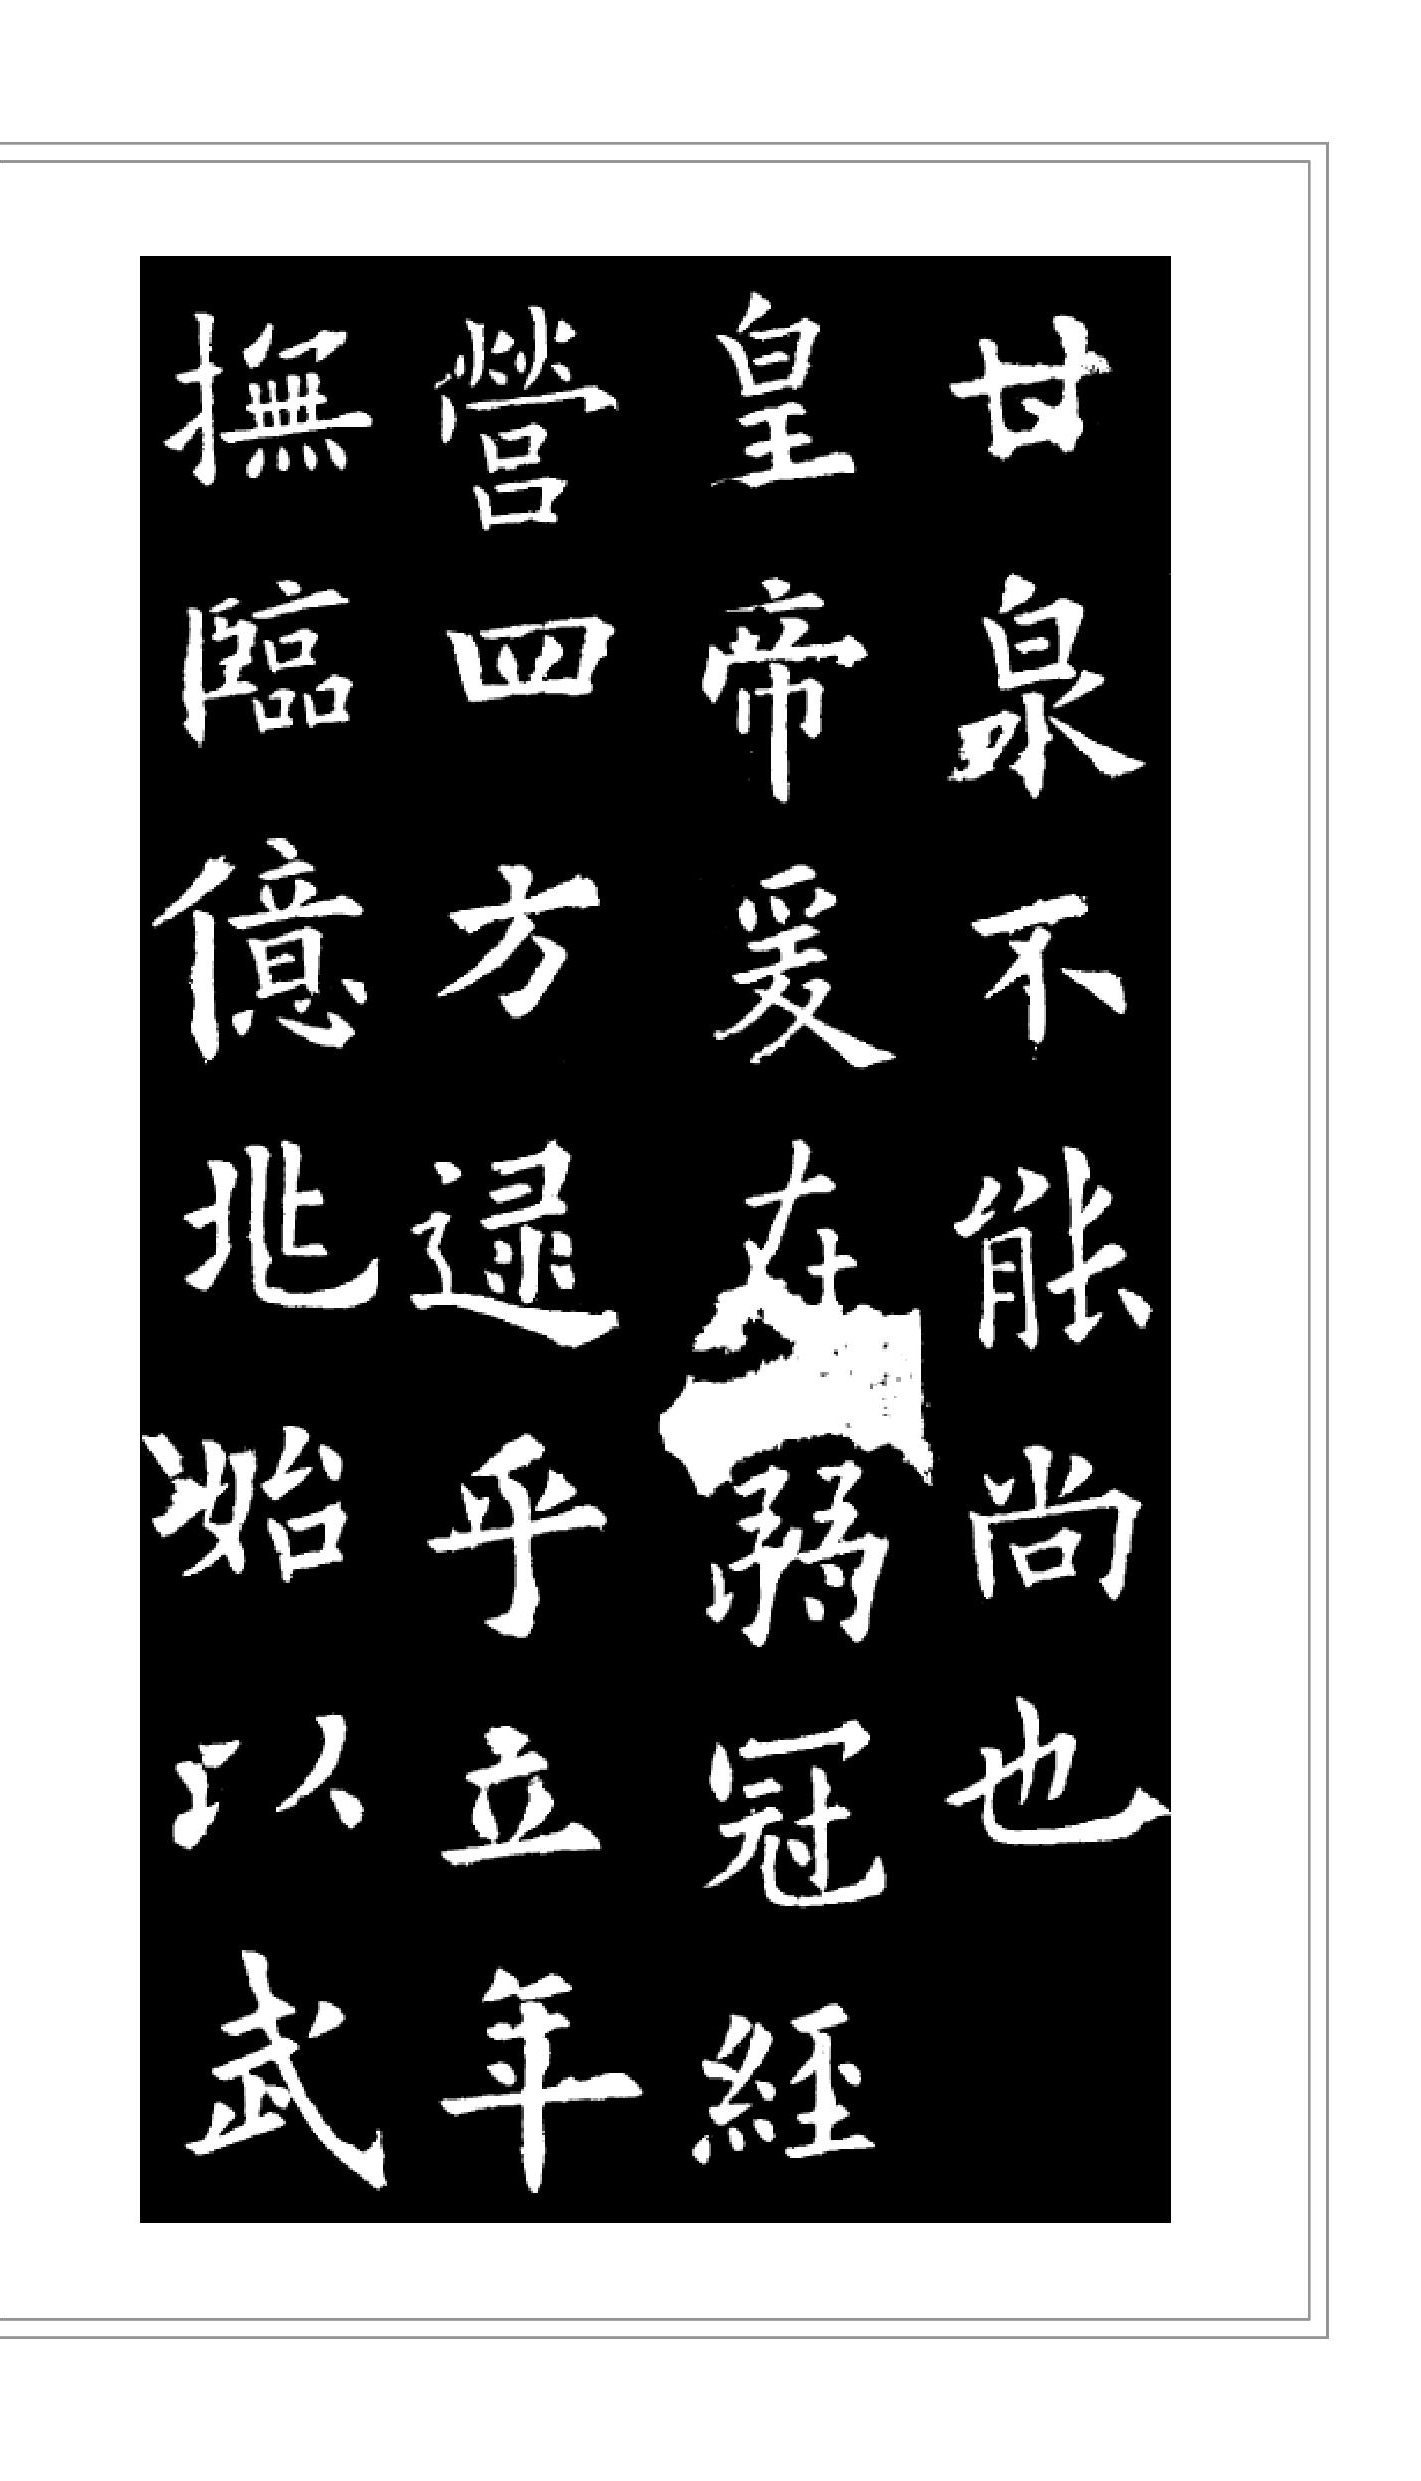 甘泉不能尚也
皇帝爰在弱冠經
營四方逯乎立年
撫臨億兆始以武